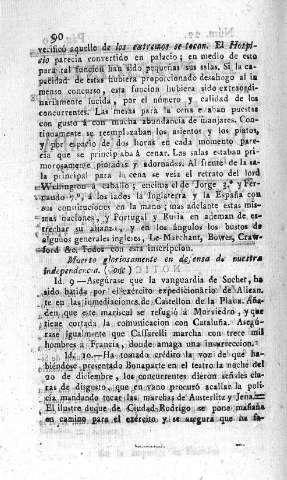 90
verificó aquello de los extremos se tocan. El Hospi-
cio parecia convertido en palacio; en medio de esto
para tal funcion han sido pequeñas sus salas. Si la ca-
pacidad de estas hubiera proporcionado desahogo al in-
menso concurso, esta funcion hubiera sido extraordi-
nariamente lucida, por el número y calidad de los
concurrentes. Las mesas para la cena estaban puestas
con gusto á con mucha abundancia de manjares. Con-
tinuamente se reemplazaban los asientos y los platos,
y por espacio de dos horas en cada momento pare-
cia que se principiaba á cenar. Las salas estaban pri-
morosamente pintadas y adornadas. Al frente de la sa-
la principal para la cena se veia el retrato del lord
Wellington á caballo; encima el de Jorge 3.º y Fer-
nando 7.º; á los lados la Inglaterra y la España con
sus constituciones en la mano; mas adelante estas mis-
mas naciones, y Portugal y Rusia en ademan de es-
trechar su alianza, y en los ángulos los bustos de
algunos generales ingleses, Le-Marchant, Bowes, Craw-
ford &c. Todos con esta inscripcion.
Muerto gloriosamente en defensa de nuestra
independencia. (Conc)
Id. 9—Asegúrase que la vanguardia de Sochet, ha
sido batida por el exército expedicionario de Alican-
te en las inmediaciones de Castellon de la Plana. Aña-
den, que este mariscal se refugió á Morviedro, y que
tiene cortada la comunicacion con Cataluña. Asegú-
rase igualmente que Caffarelli marcha con trece mil
hombres á Francia, donde amaga una insurreccion.
Id. 10.—Ha tomado crédito la voz de que ha-
biéndose presentado Bonaparte en el teatro la noche del
20 de diciembre, los concurrentes dieron señales cla-
ras de disgusto, que en vano procuró acallar la poli-
cia mandando tocar las marchas de Austerlitz y Jena.
El ilustre duque de Ciudad-Rodrigo se pone mañana
en camino para el exército y se asegura que ha fa-